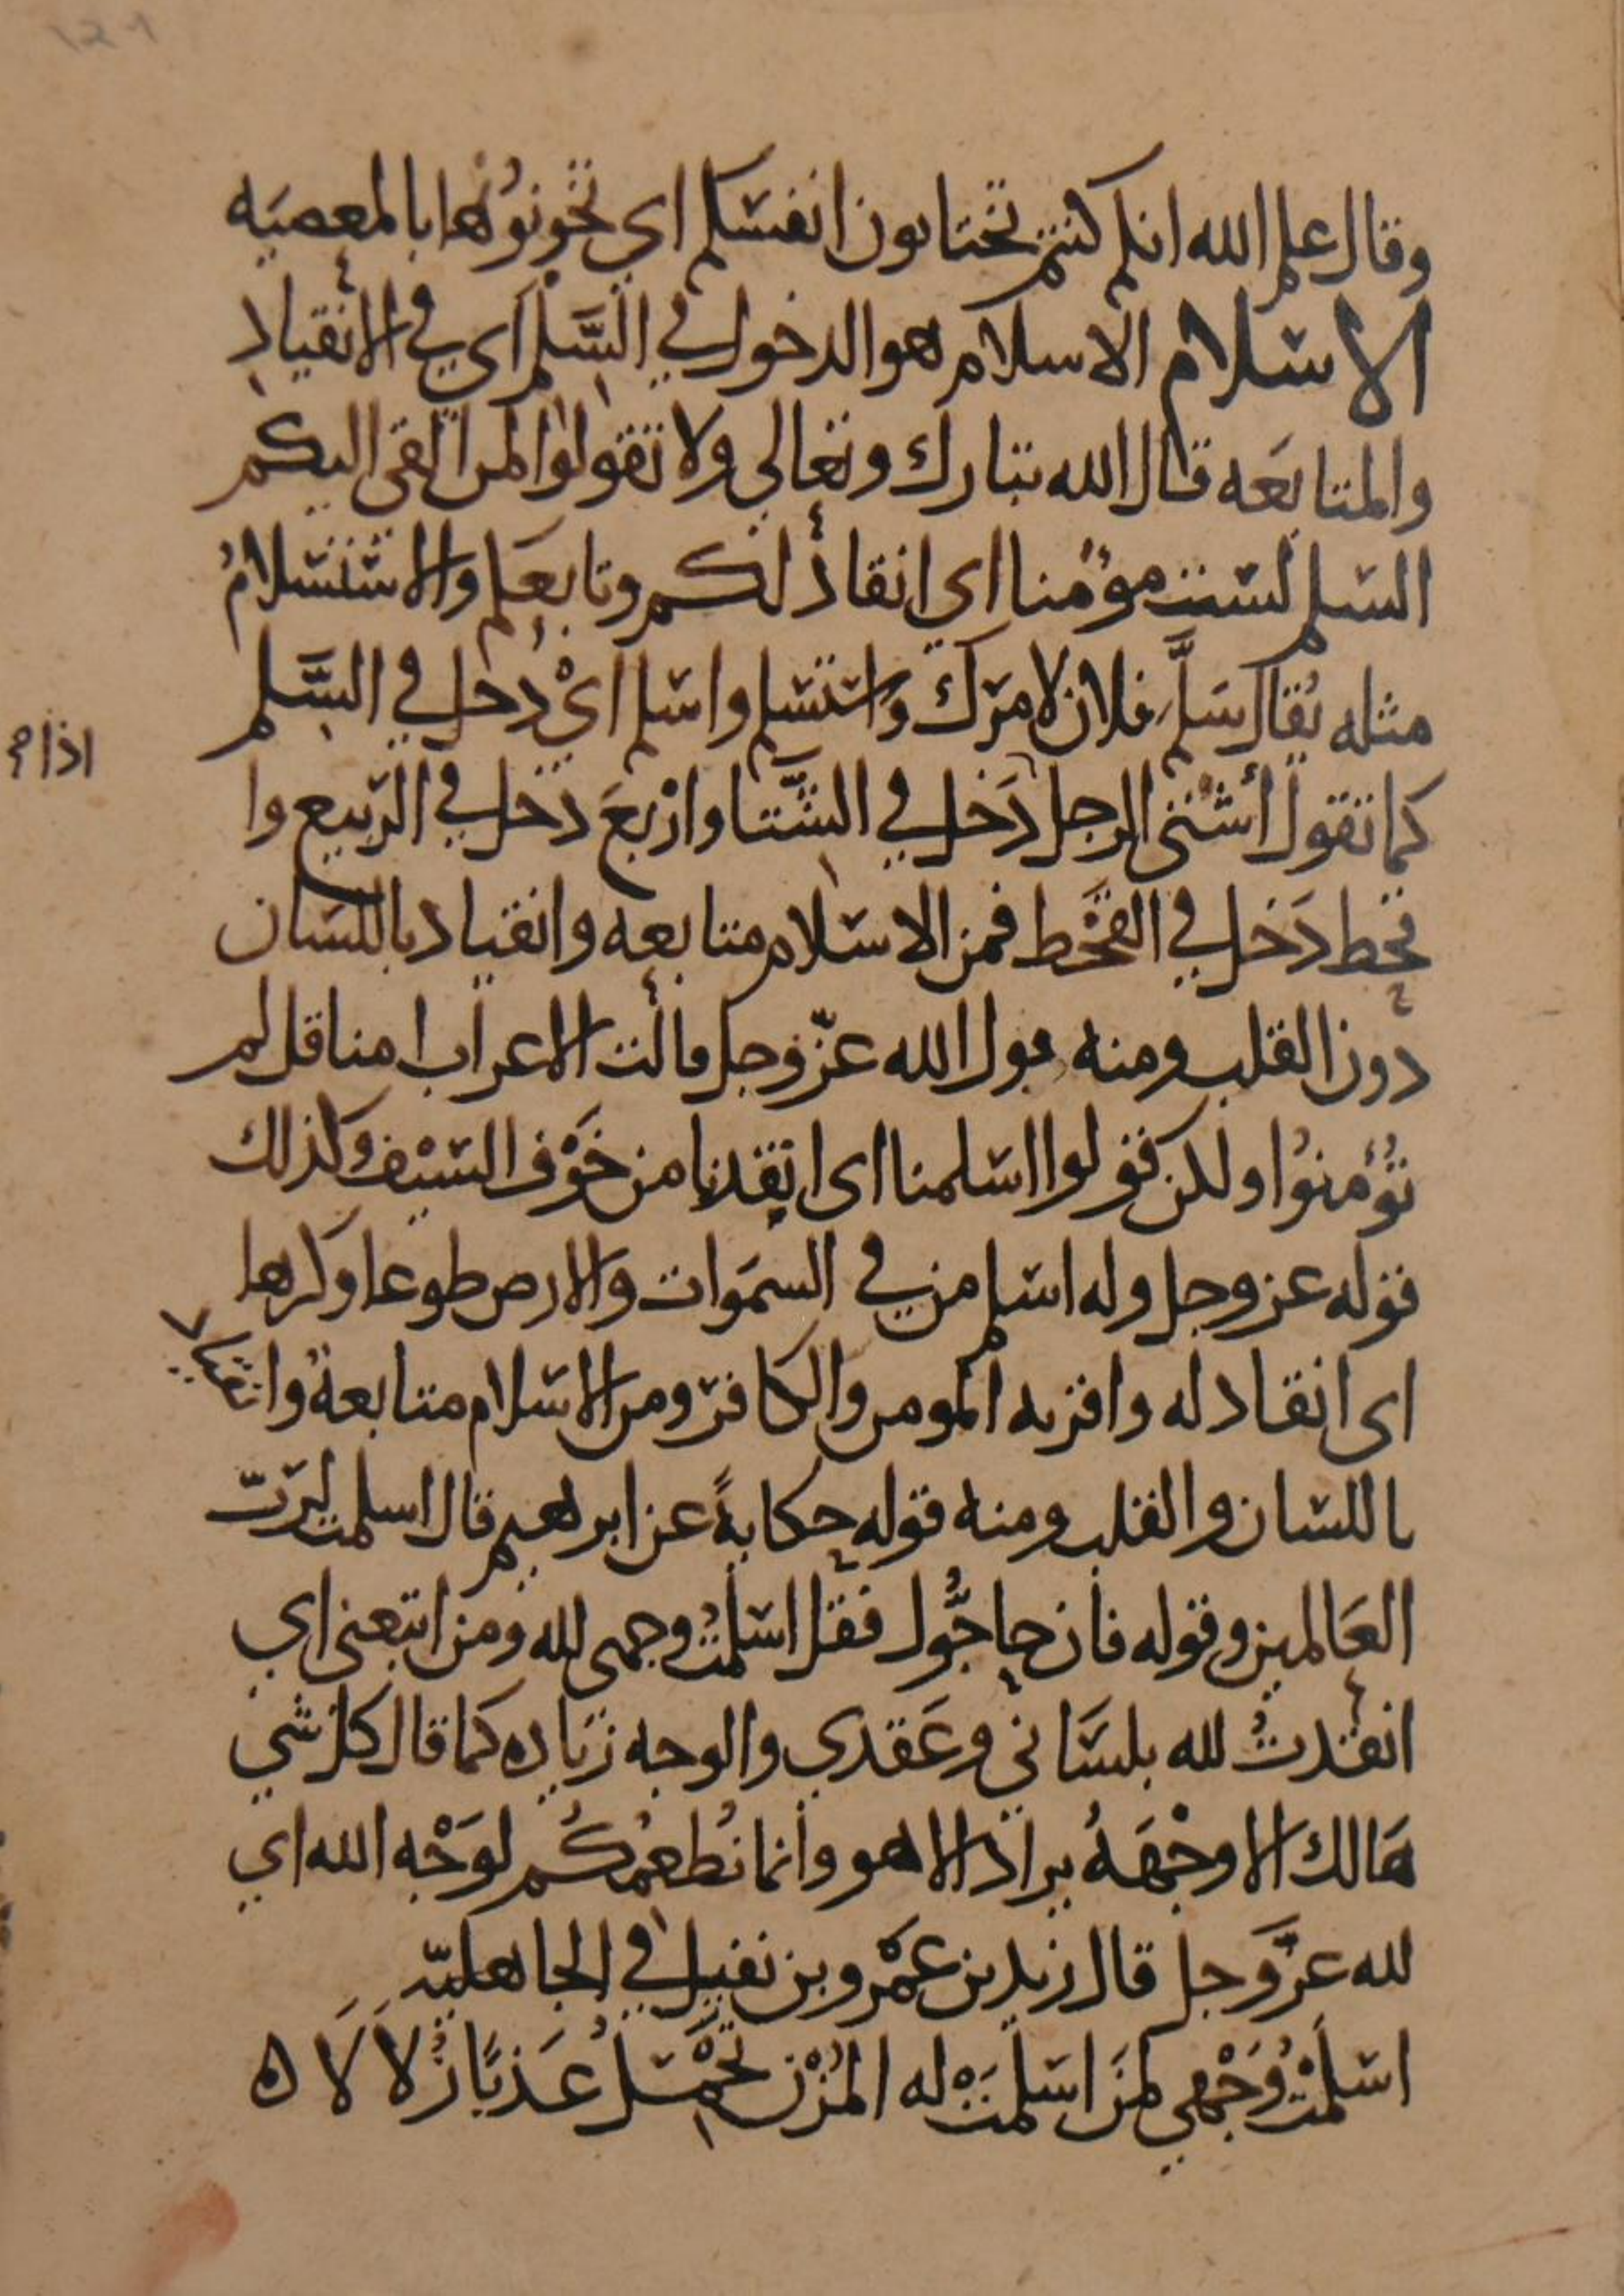 ١٤٦
وقال علم الله انكم كنتم تختانون انفسكم اي تخونونها بالمعصيه
الاسلام الاسلام هو الدخول في السَّلم اي في الانقياد
والمتابَعه قال الله تبارك وتعالى ولا تقولوا لمن القى اليكم
السلم لست مؤمنا اى انقاد لكم وتابعكم والاستسلامُ
مثله يُقال سَلَّم فلان لامرك واستسلم واسلم اىْ دخل في السَّلم
اذا م
كما تقول أشتى الرجل دَخل في الشّتا واربعَ دخل في الربيع وا
قحط دَخل في القحَط فمن الاسلام متابعه وانقياد باللسان
دون القلب ومنه قول الله عزّ وجل قالت الاعراب امنا قل لم
تؤمنوا ولكن قولوا اسلمنا اى انقدنا من خَوْف السَيْف وكذلك
قوله عز وجل وله اسلم من في السمَوات والارض طوعا وكرها
اى انقاد له واقر به المومن والكافر ومن الاسلام متابعةُ وانقياد
باللسان والقلب ومنه قوله حكايةً عن ابرهيم قال اسلمت لربّ
العَالمين وقوله فان حاجُّوك فقل اسلمتُ وجهى لله ومن اتبعنى اي
انقدتُ لله بلسَاني وعَقدي والوجه زيَاده كما قال كل شي
هَالك الا وجْهَهُ يراد الا هو وانما نُطعمُكُم لوَجْه الله اي
لله عزَّ وجل قال زيد بن عَمْرو بن نفيل في الجاهليّه
اسلَمْتُ وَجْهي لمَن اسلمَتْ له المُزْن تحْمِلُ عَذبًا زُلالَا ه